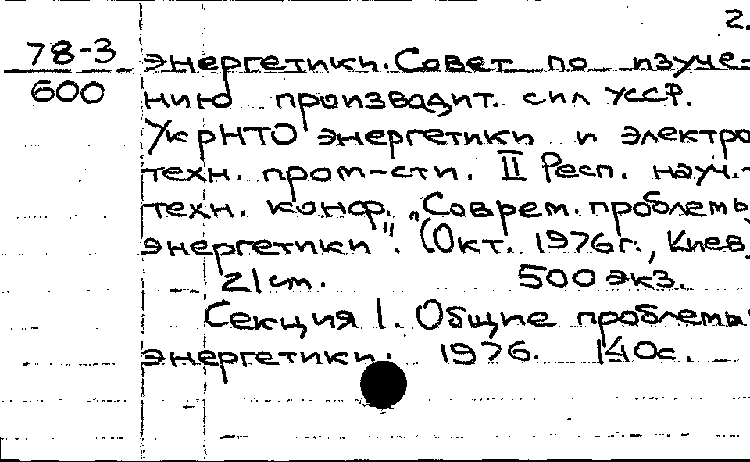 2.
78-3 энергетики. Совет по изуче-
600 нию производит. сил УССР.
УкрНТО энергетики и электро
техн. пром-сти. II Респ. науч.-
техн. конф. „Соврем. проблемы
энергетики". (Окт. 1976г., Киев)
21 cm. 500 экз.
Секция 1. Общие проблемы
энергетики. 1976. 140с.